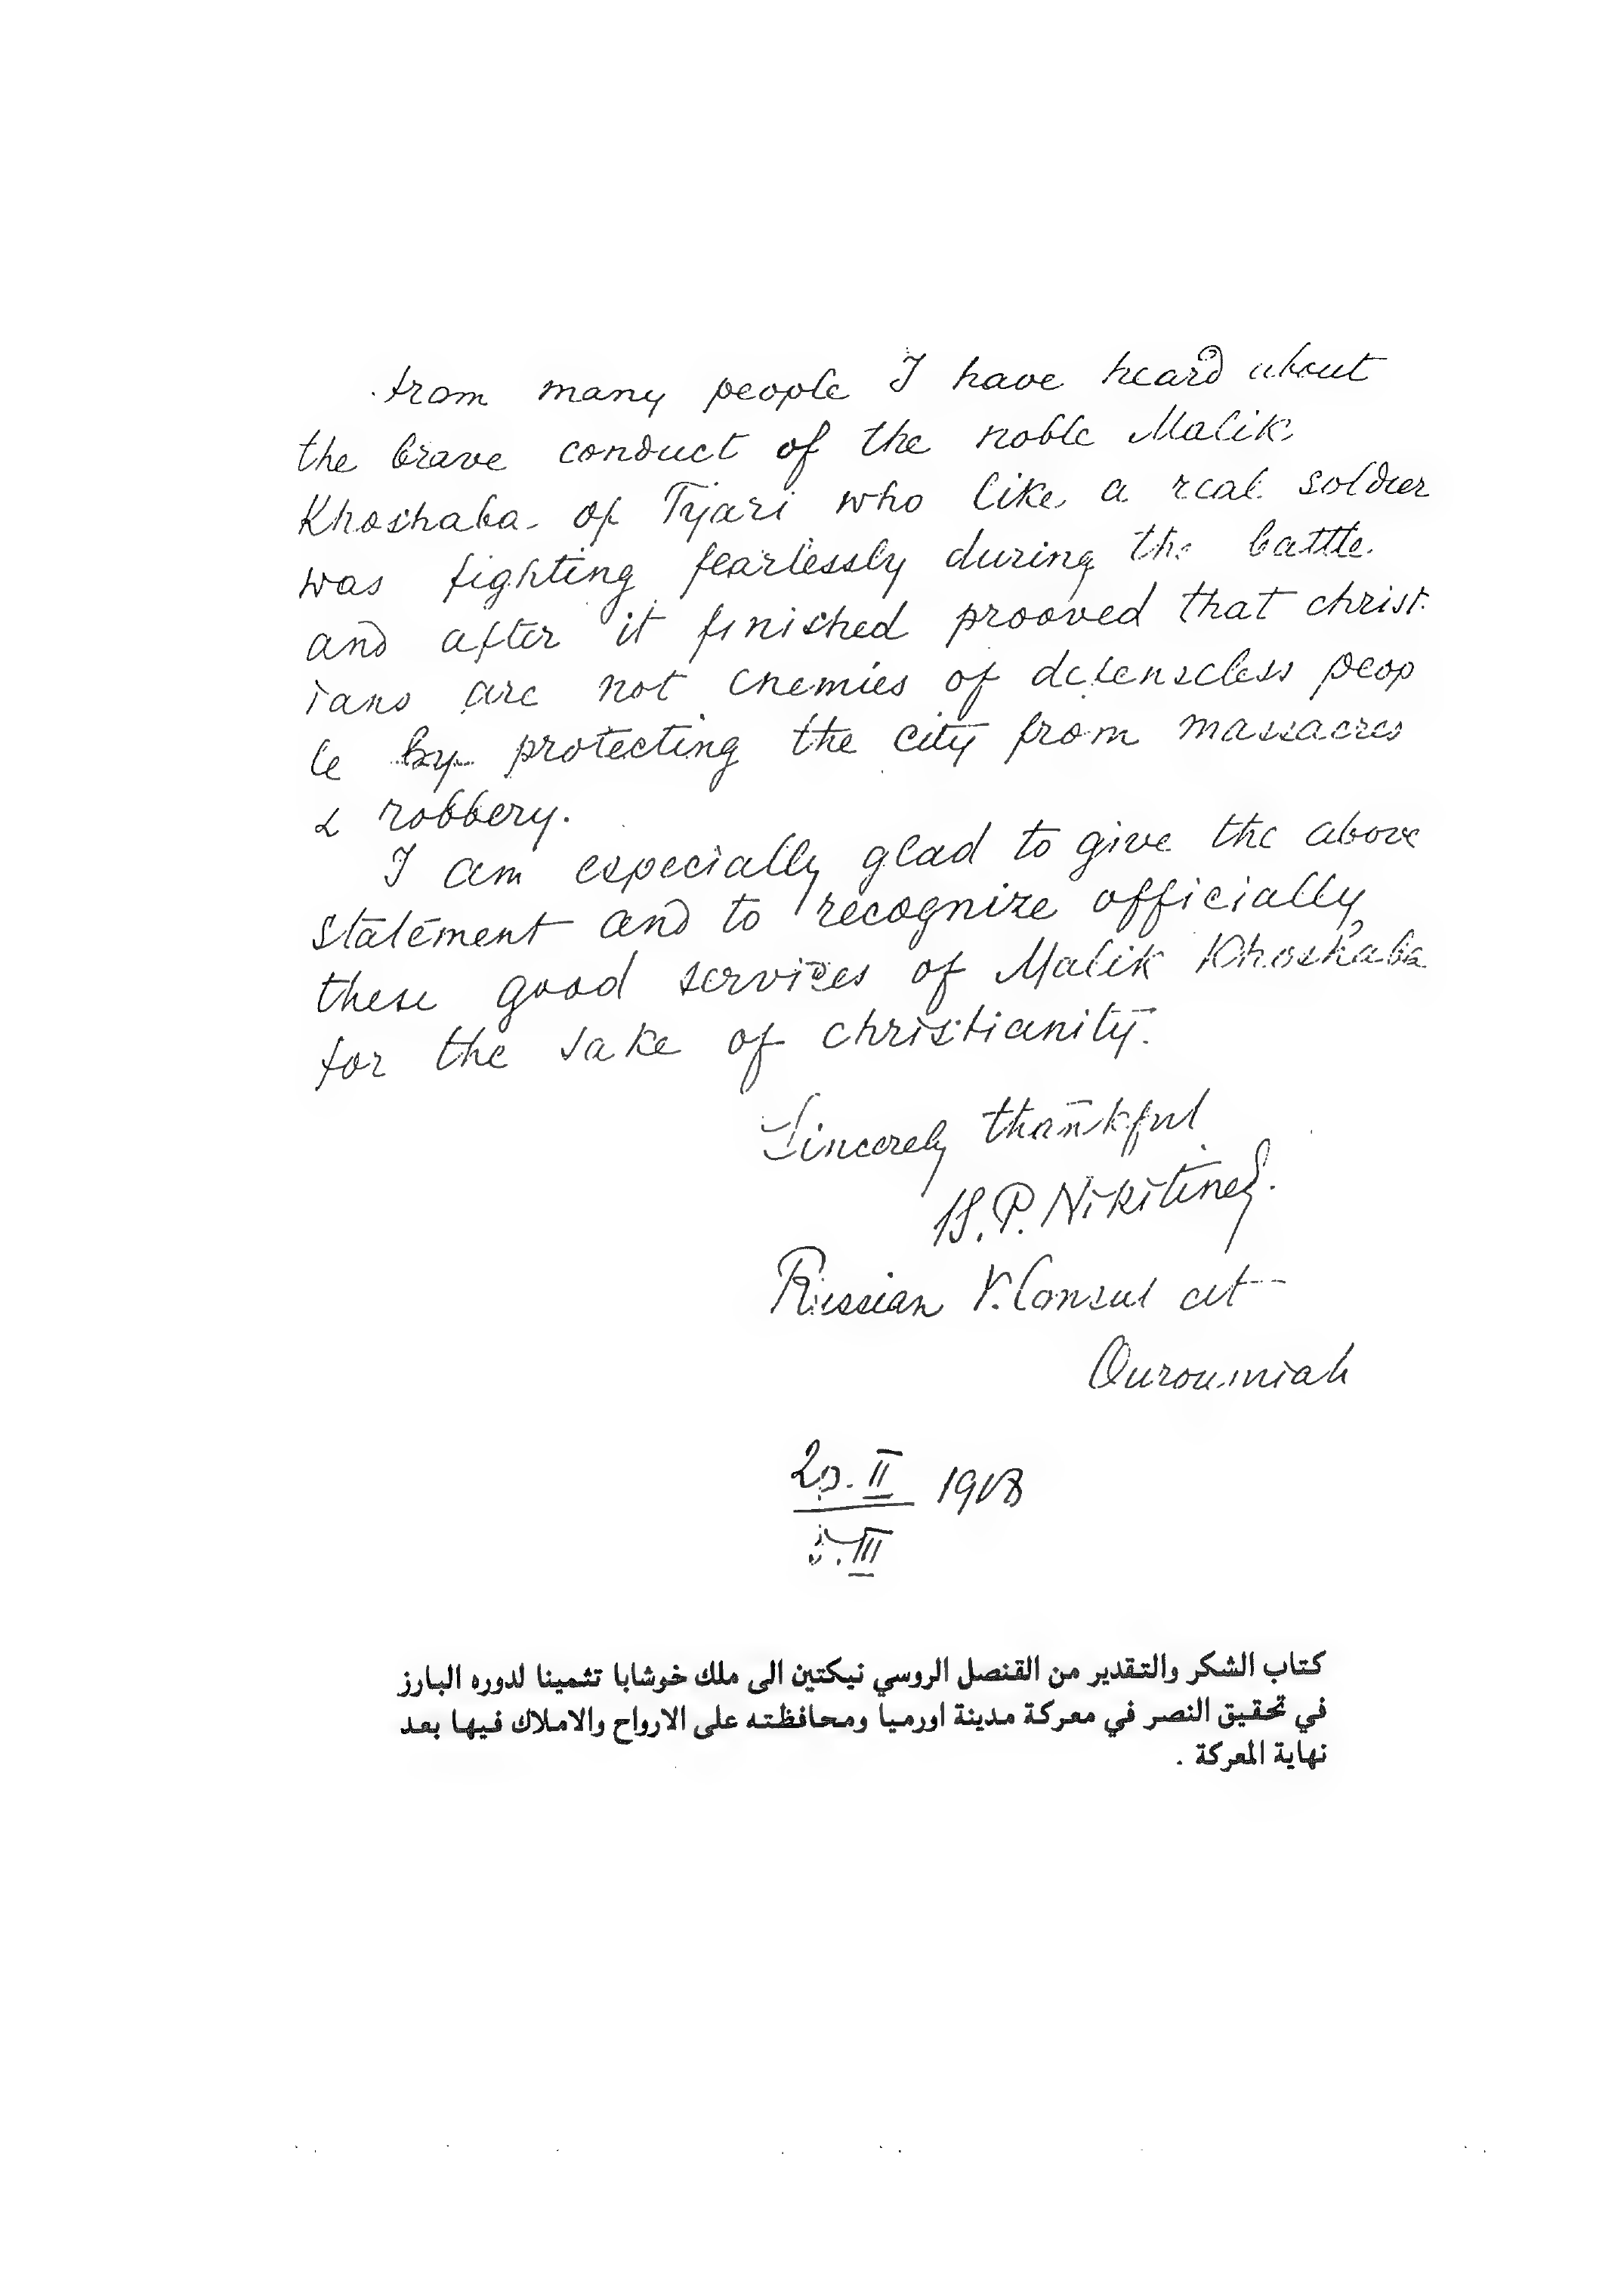 from many people I have heard about
the brave conduct of the noble Malik
Khoshaba of Tyari who like a real soldier
was fighting fearlessly during the battle
and after it finished prooved that christ
ians are not enemies of defenseless peop
le by protecting the city from massacres
& robbery.
I am especially glad to give the above
statement and to recognize officially
these good services of Malik Khoshaba
for the sake of christianity.
Sincerely thankful
P. Nikitine
Russian V. Consul at
Ouroumiah
II 1918
III
كتاب الشكر والتقدير من القنصل الروسي نيكتين الى ملك خوشابا تثمينا لدوره البارز
في تحقيق النصر في معركة مدينة اورميا ومحافظته على الارواح والاملاك فيها بعد
نهاية المعركة .